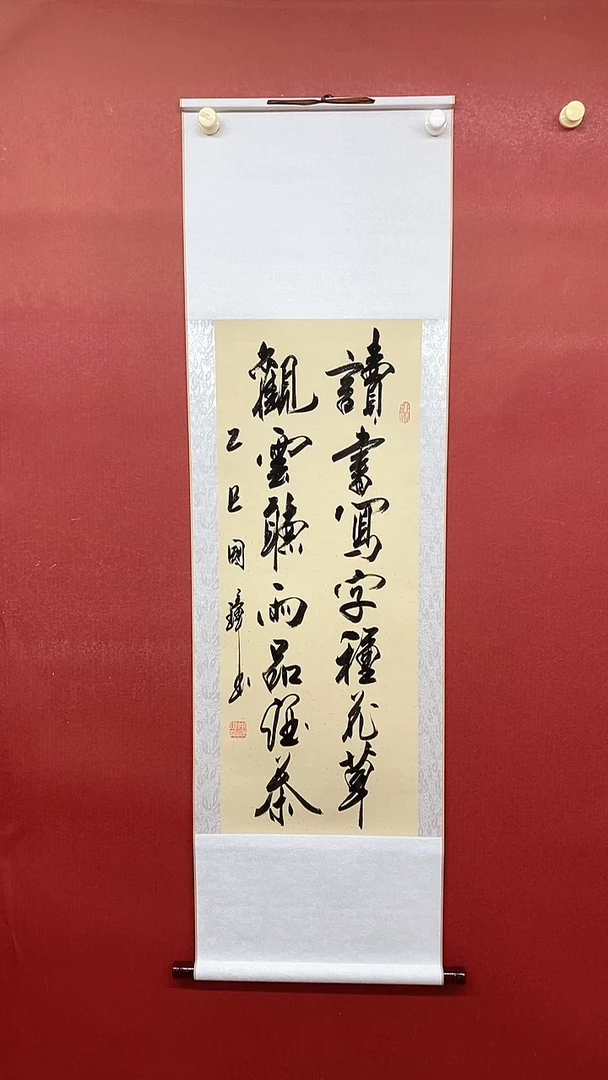 讀書寫字種花草
觀雲聽雨品茶
乙巳國書